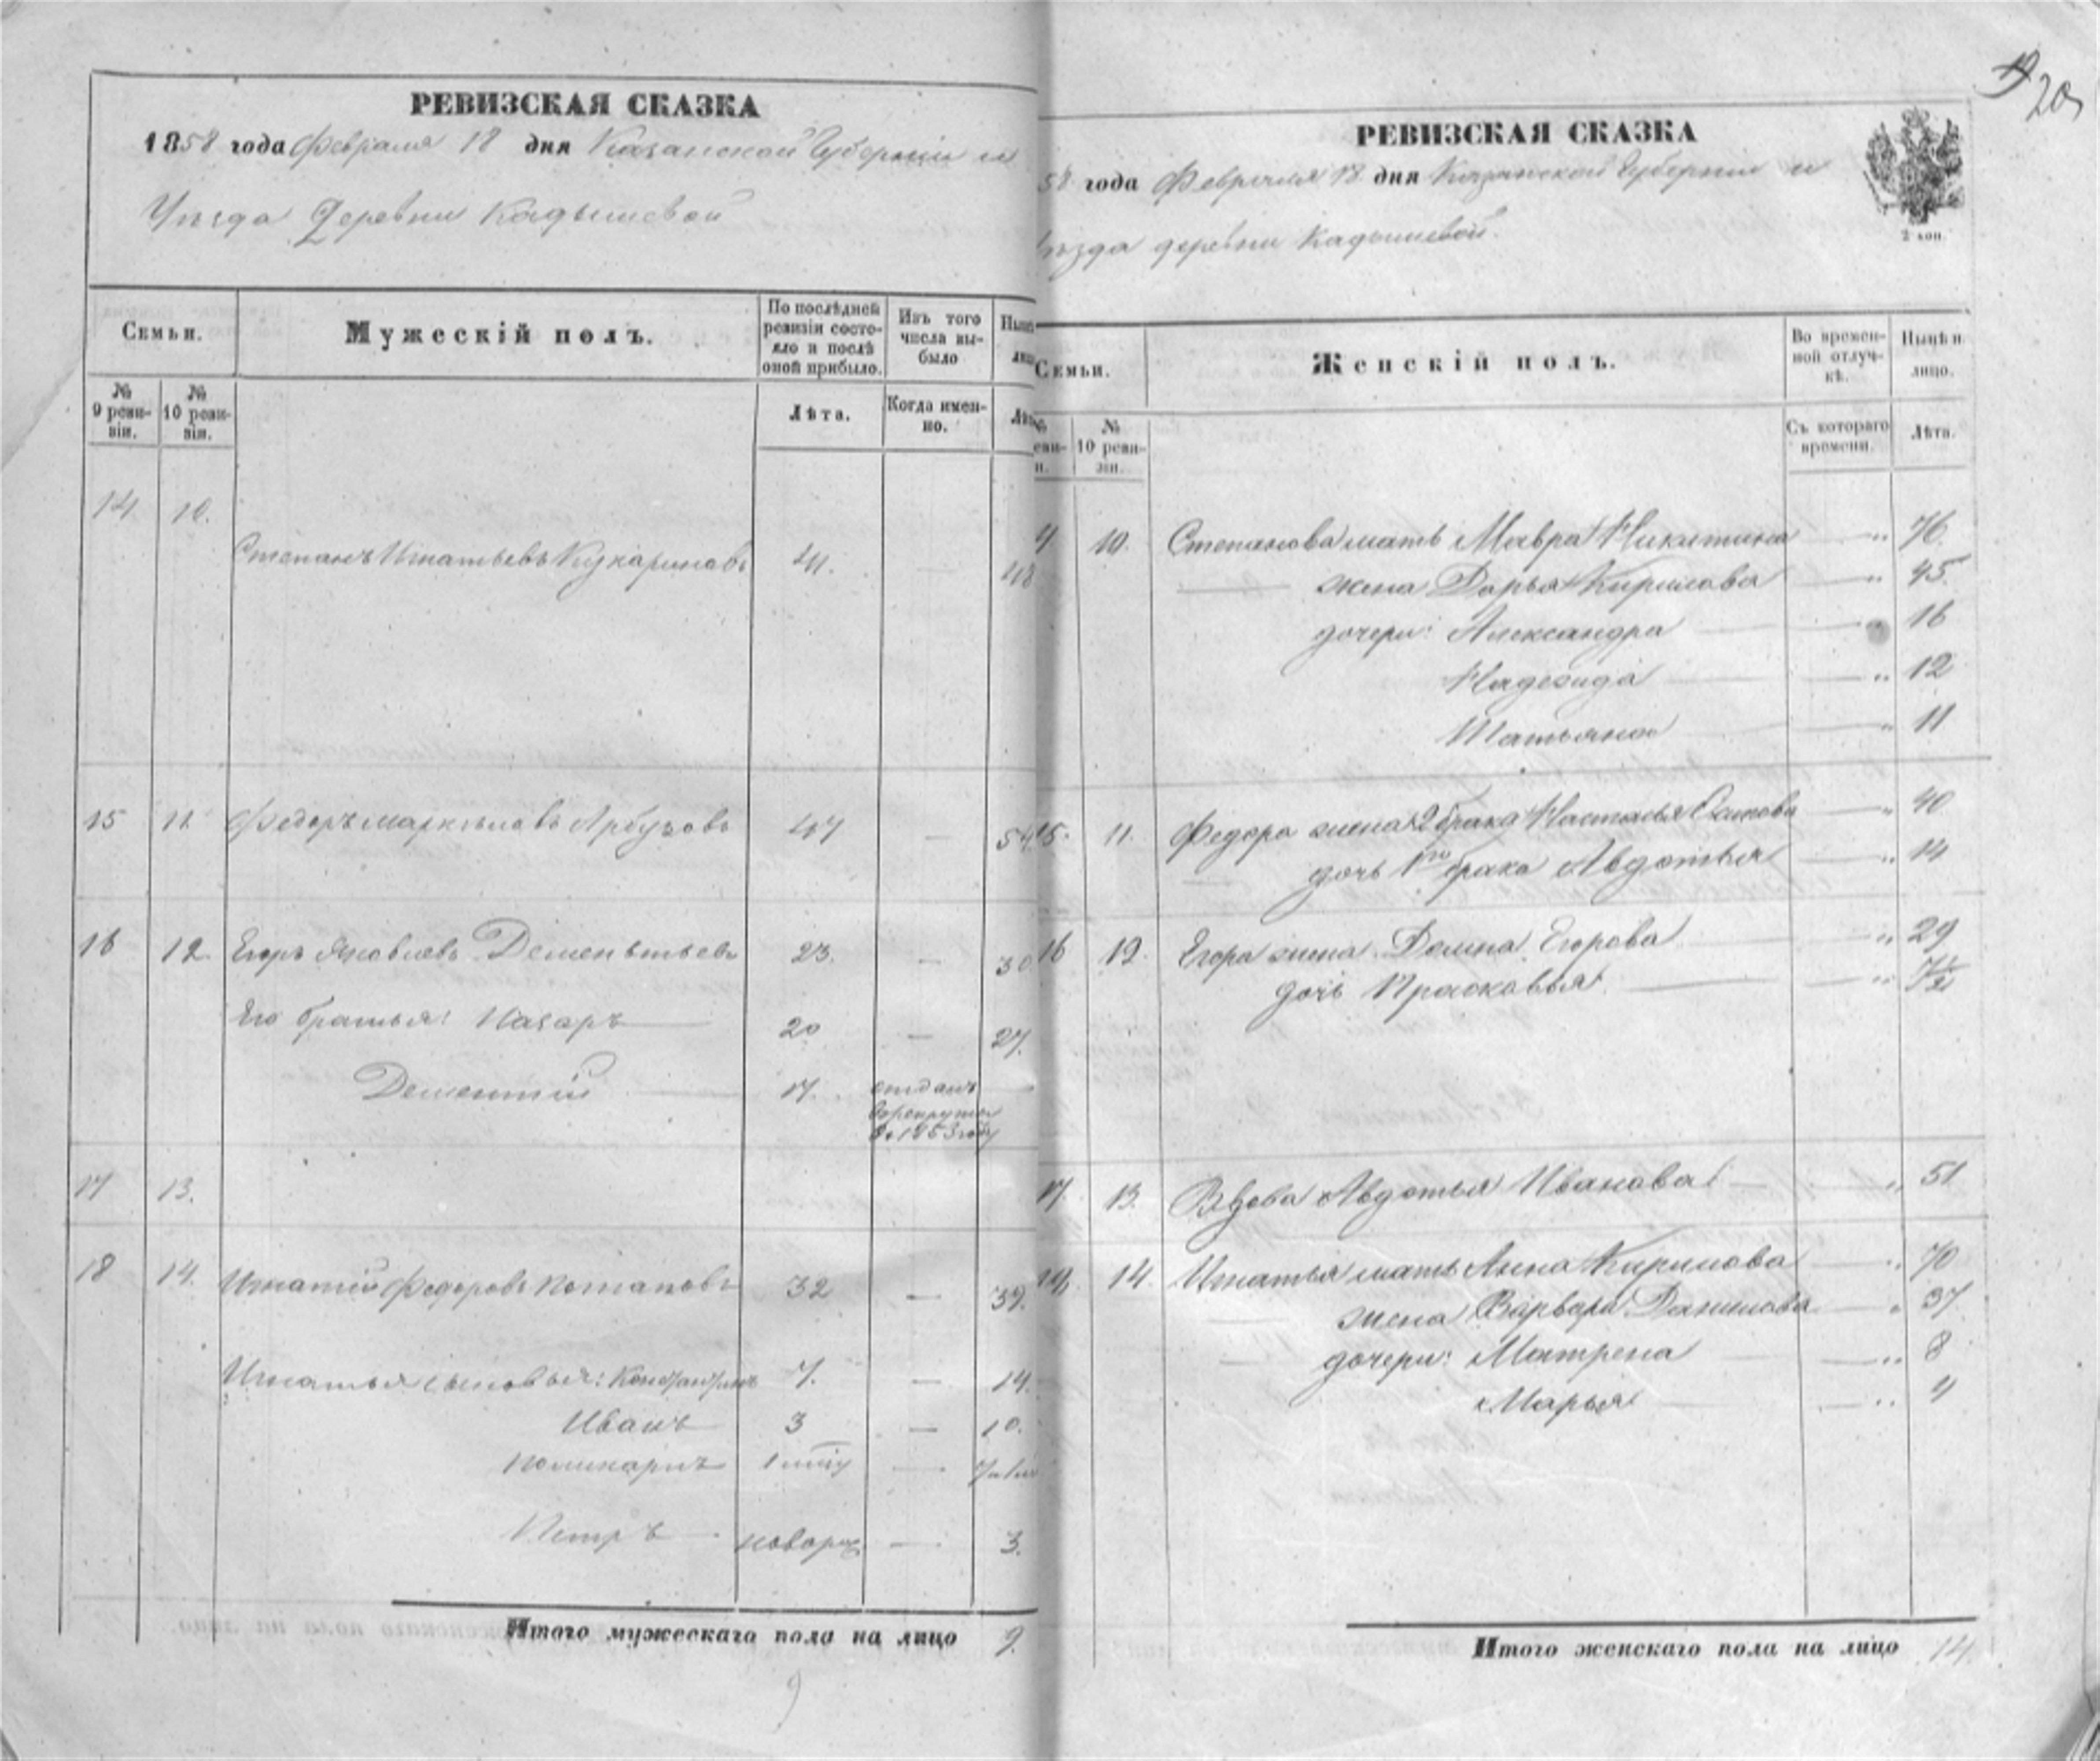 19 20
РЕВИЗСКАЯ СКАЗКА
1858 года Февраля 18 дня Казанской Губернии и
Уѣзда Деревни Кадышевой
Семьи.
Мужескій полъ.
По послѣдней ревизіи состо-
яло и послѣ оной прибыло.
Изъ того числа вы-
было
№ 9 реви-
зіи.
№ 10 реви-
зіи.
Лѣта.
Когда имен-
но.
14 10. Степанъ Игнатьевъ Кукариновъ 41. — 48
15 11 Федоръ Маркеловъ Арбузовъ 47 — 54
16 12. Егоръ Яковлевъ Дементьевъ 23. — 30
Его братья: Назаръ 20 — 27.
Дементій 17. отданъ —
в рекруты
в 1853 году
17 13.
18 14. Игнатій Федоровъ Потаповъ 32 — 39.
Игнатья сыновья: Константинъ 7. — 14.
Иванъ 3 — 10.
Поликарпъ —
Петръ — новорож — 3.
Итого мужескаго пола на лицо 9.
9
РЕВИЗСКАЯ СКАЗКА
58 года Февраля 18 дня Казанской Губернии и
ѣзда деревни Кадышевой.
2 коп.
Семьи.
Женскій полъ.
Во времен-
ной отлуч-
кѣ.
Нынѣ н
лицо.
№ 10 реви-
зіи.
Съ котораго времени.
Лѣта.
4 10. Степанова мать Мавра Никитина — " 76.
жена Дарья Кирилова — " 45.
дочери: Александра — " 16
Надежда — " 12
Татьяна — " 11
15. 11. Федора жена 2 брака Настасья Осипова — " 40
дочь 1го брака Авдотья — " 14
16 12. Егора жена Домна Егорова — " 29
дочь Прасковья — "
17. 13. Вдова Авдотья Иванова — " 51
14. Игнатья мать Анна Кирилова — " 70
жена Варвара Данилова — " 37
дочери: Матрена — " 8
Марья — " 4
Итого женскаго пола на лицо 14.